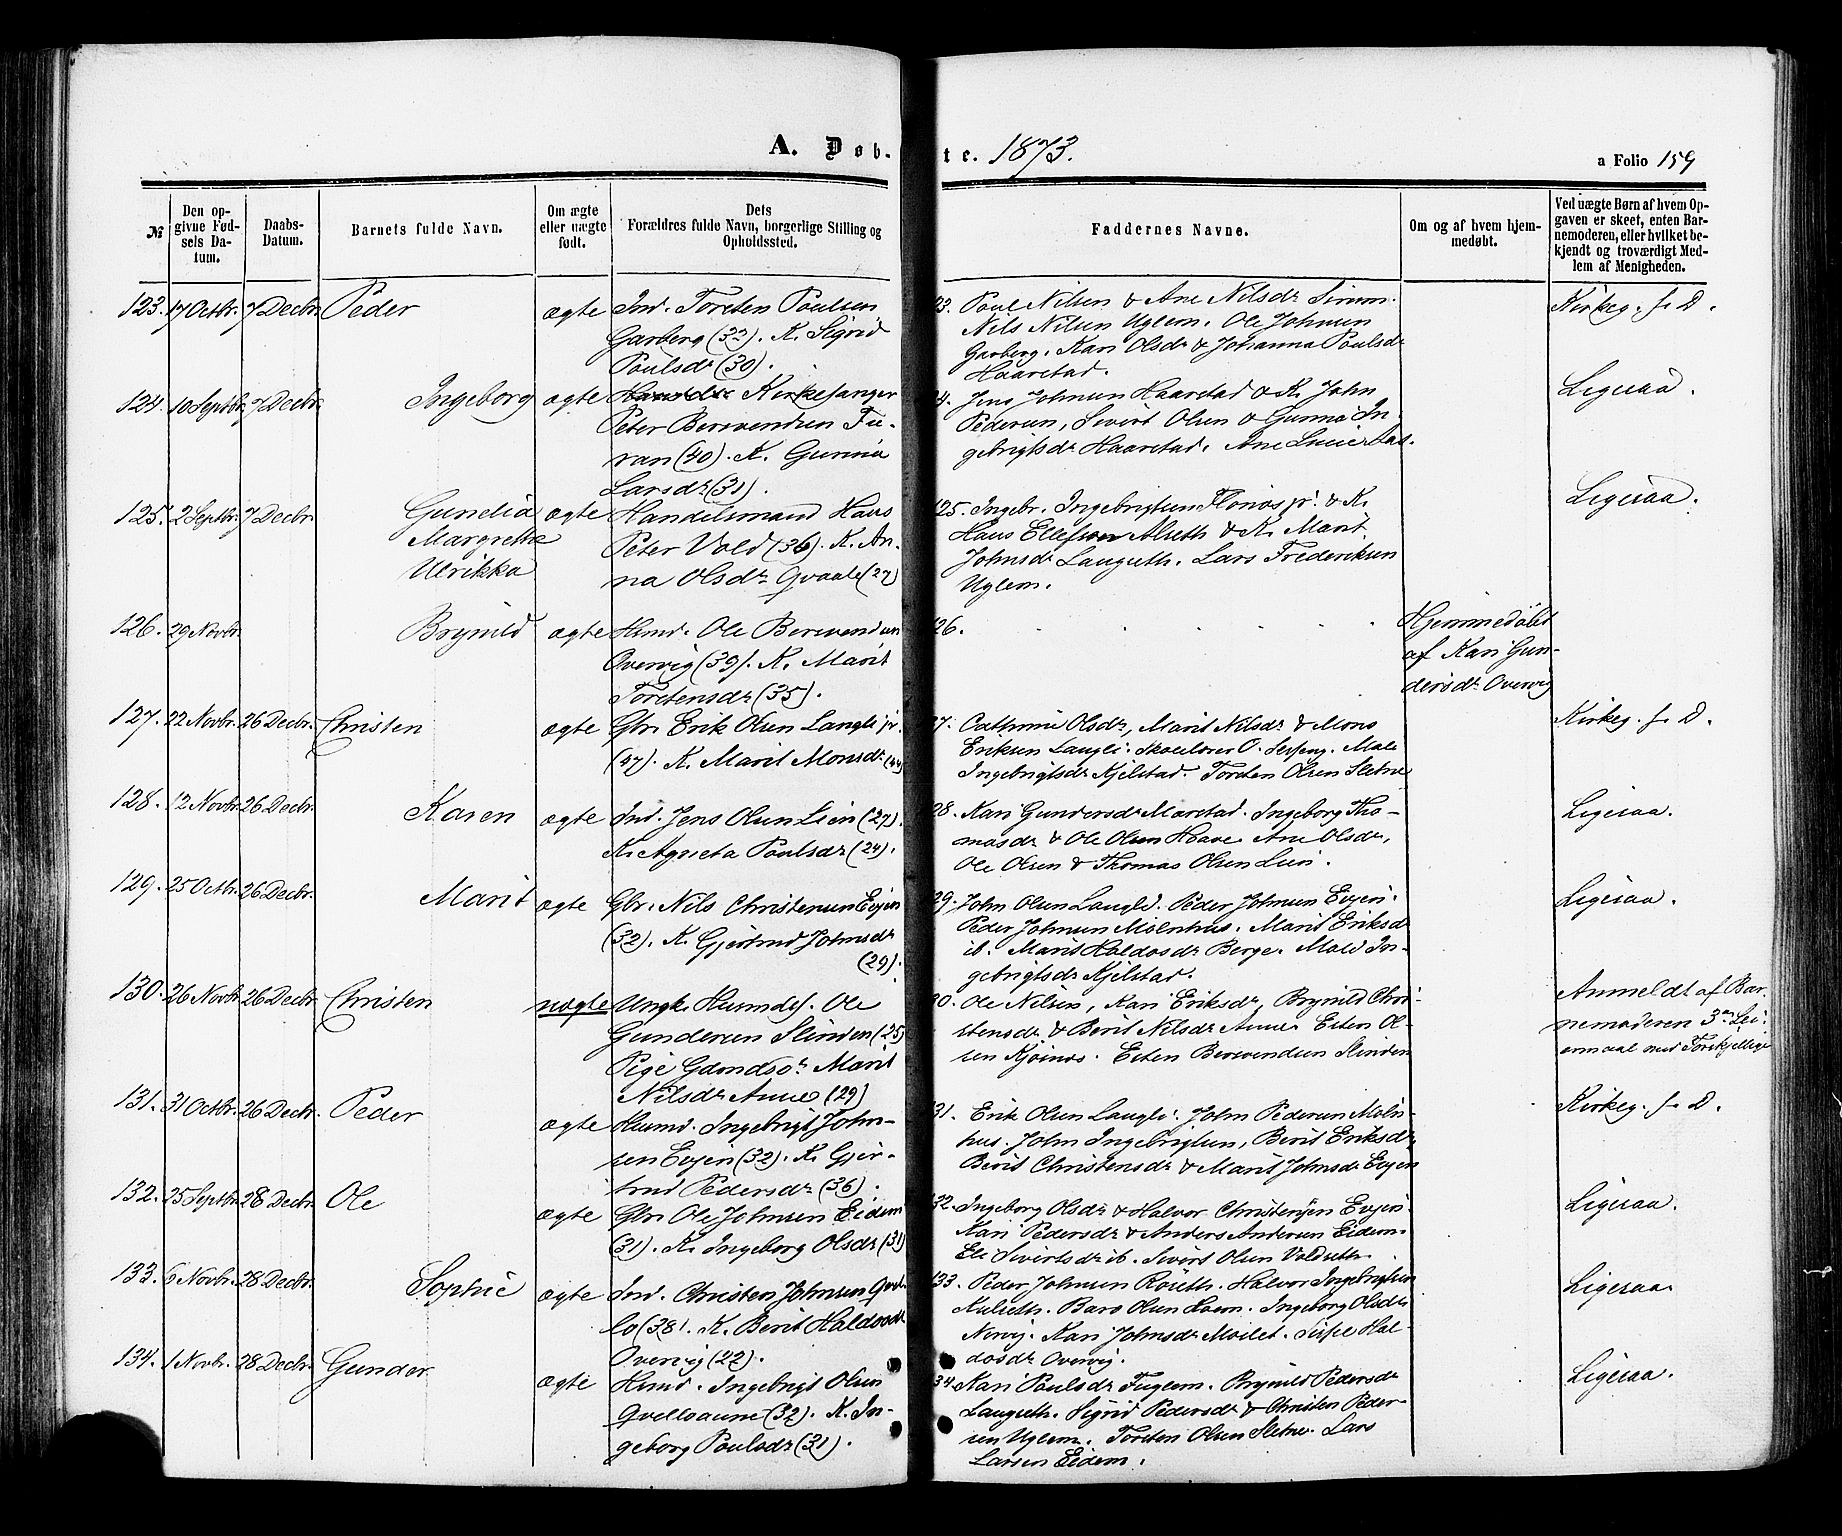 A. Døb.
te. 1873.
a Folio 159
№
Den opgivne Fødsels Datum.
Daabs-Datum.
Barnets fulde Navn.
Om ægte eller uægte født.
Dets Forældres fulde Navn, borgerlige Stilling og Opholdssted.
Faddernes Navne.
Om og af hvem hjemmedøbt.
Ved uægte Børn af hvem Opgaven er skeet, enten Barnemoderen, eller hvilket bekjendt og troværdigt Medlem af Menigheden.
123. 17 Octbr. 7 Decbr. Peder ægte Ind. Torsten Poulsen
Garberg (32). K. Sigrid
Poulsdr (30).
23. Poul Nilsen & Ane Nilsdr
Nils Nilsen Uglem. Ole Johnsen
Garberg. Kari Olsdr & Johanna Poulsdr
Haarstad.
Kirkeg. f. D.
124. 10 Septbr. 7 Decbr. Ingeborg ægte Kirkesanger
Peter Bersvendsen Fu-
ran (40). K. Gunnia
Larsdr (31).
24. Jens Johnsen Haarstad & K. John
Pedersen, Sivert Olsen & Gunnia In-
gebrigtsdr Haarstad. Ane
Ligesaa.
125. 2 Septbr. 7 Decbr. Gunelia
Margrethe
Ulrikka
ægte Handelsmand Hans
Peter Vold (36). K. An-
na Olsdr Qvaale (27)
125. Ingebr. Ingebrigtsen Flönæs jr. & K.
Hans Ellefsen Alseth & K. Marit
Johnsdr Laugseth. Lars Frederiksen
Uglem.
Ligesaa.
126. 29 Novbr. Brynild ægte Husmd. Ole Bersvendsen
Overvig (39). K. Marit
Torstensdr (35).
126.
Hjemmedøbt
af Kari Gun-
dersdr. Overvig
127. 22 Novbr. 26 Decbr. Christen ægte Gbr. Erik Olsen Langli jr.
(47). K. Marit Monsdr (44)
27. Cathrine Olsdr, Marit Nilsdr & Mons
Eriksen Langli. Skolelærer O. Mali
Ingebrigtsdr Kjelstad. Torsten Olsen Sletne
Kirkeg. f. D.
128. 12 Novbr. 26 Decbr. Karen ægte Ind. Jens Olsen Lien (27).
K. Agneta Poulsdr (24).
28. Kari Gundersdr Marstad. Ingeborg Tho-
masdr & Ole Olsen Haave. Ane Olsdr,
Ole Olsen & Thomas Olsen Lien.
Ligesaa.
129. 25 Octbr. 26 Decbr. Marit ægte Gbr. Nils Christensen Evjen
(32). K. Gjertrud Johnsdr
(29).
29. John Olsen Langli. Peder Johnsen Evjen.
Peder Johnsen Molnhus. Marit Eriksdr
ib. Marit Haldosdr Berge. Mali In-
gebrigtsdr Kjelstad.
Ligesaa.
130. 26 Novbr. 26 Decbr. Christen uægte Ungk. Husmdsf. Ole
Gundersen Slinden (25)
Pige Gdmdsd. Marit
Nilsdr Aune (29)
30. Ole Nilsen, Kari Eriksdr, Brynild Chri-
stensdr & Berit Nilsdr Aune. Esten Ol-
sen Kjösnæs. Esten Bersvendsen Slinden
Anmeldt af Bar-
nemoderen 3die Lei-
ermaal med Forskjellige
131. 31 Octbr. 26 Decbr. Peder ægte Husmd. Ingebrigt John-
sen Evjen (32). K. Gjer-
trud Pedersdr (36).
31. Erik Olsen Langli. John Pedersen Moln-
hus. John Ingebrigtsen, Berit Eriksdr
Berit Christensdr & Marit Johnsdr Evjen
Kirkeg. f. D.
132. 25 Septbr. 28 Decbr. Ole ægte Gbr. Ole Johnsen Eidem
(31). K. Ingeborg Olsdr (31)
132. Ingeborg Olsdr & Halvor Christensen Evjen.
Kari Pedersdr & Anders Andersen Eidem.
Eli Sivertsdr ib. Sivert Olsen Voldseth.
Ligesaa.
133. 6 Novbr. 28 Decbr. Sophie ægte Ind. Christen Johnsen Qvel-
lo (38). K. Berit Haldosdr
Overvig (22).
133. Peder Johnsen Röseth. Halvor Ingebrigtsen
Kulseth. Baro Olsen Moen. Ingeborg Olsdr
Nervig. Kari Johnsdr Moslet. Hal-
dosdr Overvig.
Ligesaa
134. 1 Novbr. 28 Decbr. Gunder ægte Husmd. Ingebrigt Olsen
Qvelloaune (32). K. In-
geborg Poulsdr (31).
34. Kari Poulsdr Fuglem. Brynild Pedersdr
Laugseth. Sigrid Pedersdr & Christen Peder-
sen Uglem. Torsten Olsen Sletne. Lars
Larsen Eidem.
Ligesaa.